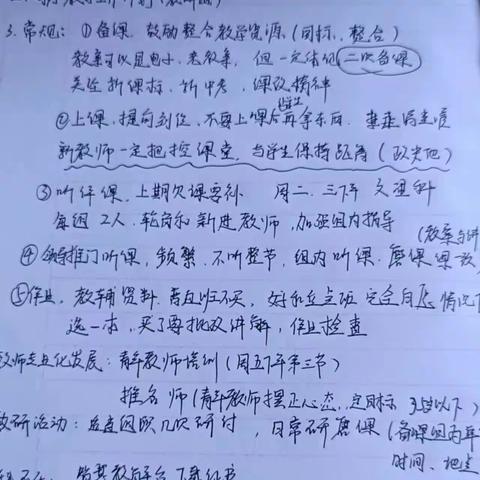 3. 常规: ①备课. 鼓励整合教学资源 (同标、整合)
教案可以是电子、老教案, 但一定体现二次备课
关注新课标、新中考, 课改精神
②上课, 提前到位、不要上课后再拿东西.
新教师一定把控课堂, 与学生保持距离 (
③听评课, 上期欠课要补 周二、三下午 文理科
每周2人, 轮岗和新进教师, 加强组内指导
(教案与
④领导推门听课, 频繁、不听整节, 组内听课.磨课
⑤作业, 教辅资料 情况下
选一本, 买了要批改讲解, 作业检查
教师专业化发展: 青年教师培训 (周五下午第三节)
推名师 (青年教师摆正心态、定目标 35岁以下)
教研活动: 几次研讨, 日常研磨课 (备课组
时间、地点